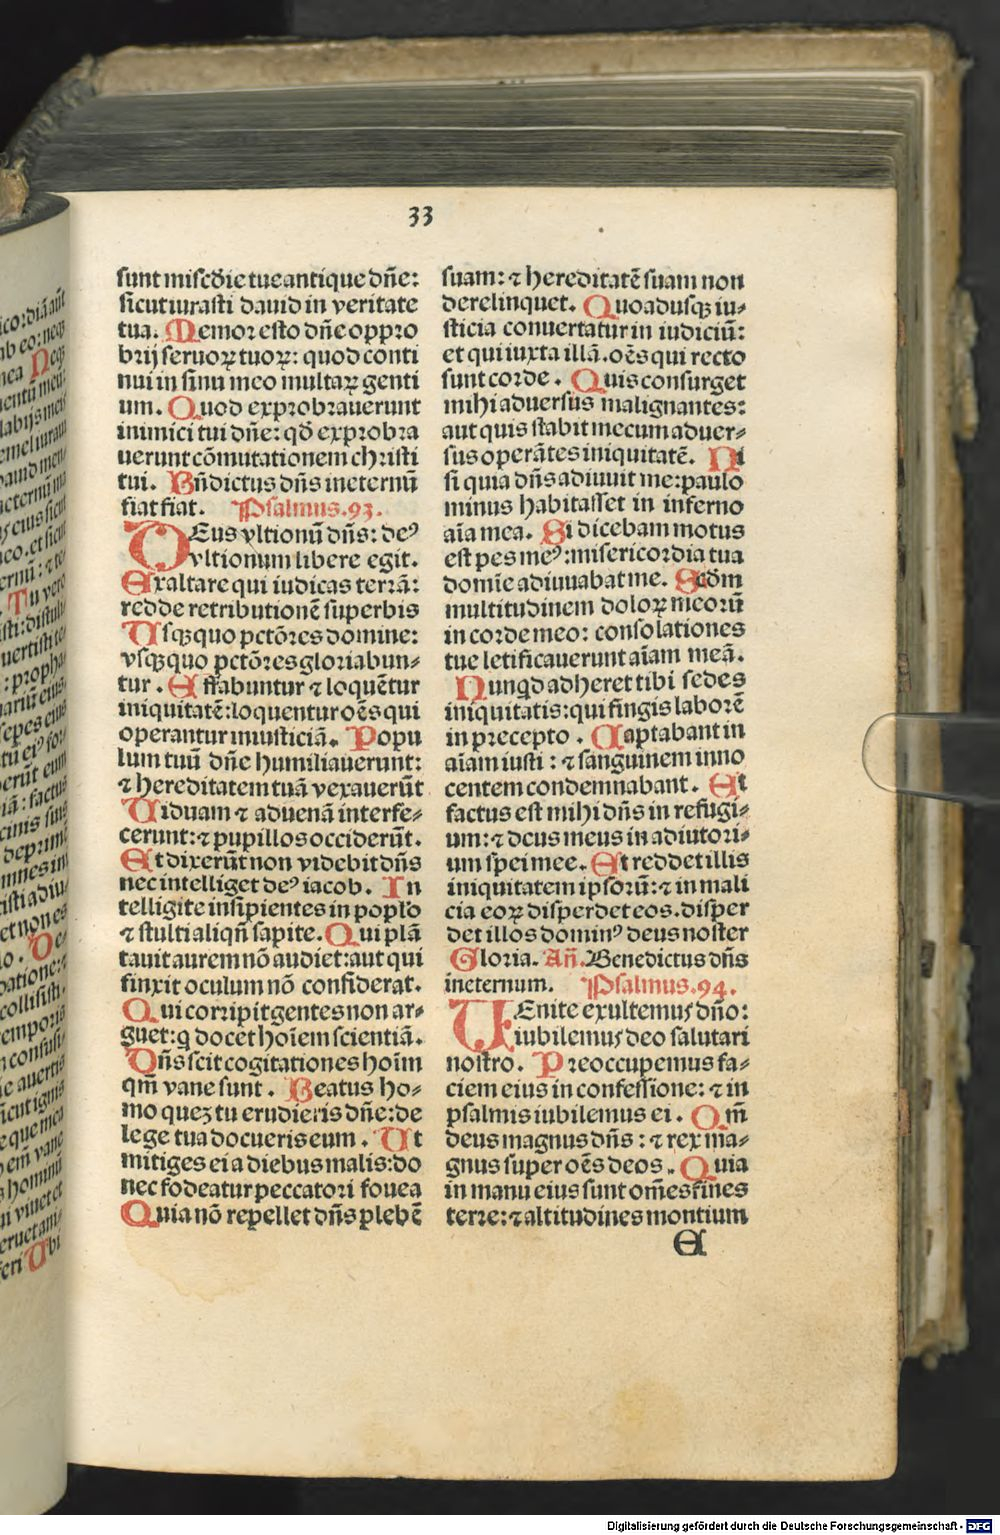 33
sunt misc̄die tue antique dn̄e:
sicut iurasti dauid in veritate
tua. Memor esto dn̄e oppro
brij seruoꝝ tuoꝝ: quod conti
nui in sinu meo multaꝝ genti
um. Quod exprobrauerunt
inimici tui dn̄e: qd̄ exprobra
uerunt cōmutationem christi
tui. Bn̄dictus dn̄s ineternū
fiat fiat. Psalmus.93.
DEus vltionū dn̄s: deꝰ
vltionum libere egit.
Exaltare qui iudicas terrā:
redde retributionē superbis
Usqꝫquo pctōres domine:
vsqꝫquo pctōres gloriabun⸗
tur. Effabuntur ⁊ loquētur
iniquitatē: loquentur oēs qui
operantur iniusticiā. Popu
lum tuū dn̄e humiliauerunt:
⁊ hereditatem tuā vexauerūt
Uiduam ⁊ aduenā interfe⸗
cerunt: ⁊ pupillos occiderūt.
Et dixerūt non videbit dn̄s
nec intelliget deꝰ iacob. In
telligite insipientes in poplo
⁊ stulti aliqn̄ sapite. Qui plā
tauit aurem nō audiet: aut qui
finxit oculum nō considerat.
Qui corripit gentes non ar⸗
guet: q docet hoīem scientiā.
Dn̄s scit cogitationes hoīm
qm̄ vane sunt. Beatus ho⸗
mo queꝫ tu erudieris dn̄e: de
lege tua docueris eum. Ut
mitiges ei a diebus malis: do
nec fodeatur peccatori fouea
Quia nō repellet dn̄s plebē
suam: ⁊ hereditatē suam non
derelinquet. Quoadusqꝫ iu⸗
sticia conuertatur in iudiciū:
et qui iuxta illā. oēs qui recto
sunt corde. Quis consurget
mihi aduersus malignantes:
aut quis stabit mecum aduer⸗
sus operātes iniquitatē. Ni
si quia dn̄s adiuuit me: paulo
minus habitasset in inferno
aīa mea. Si dicebam motus
est pes meꝰ: misericordia tua
domīe adiuuabat me. Scd̄m
multitudinem doloꝝ meorū
in corde meo: consolationes
tue letificauerunt aīam meā.
Nunqd adheret tibi sedes
iniquitatis: qui fingis laborē
in precepto. Captabant in
aīam iusti: ⁊ sanguinem inno
centem condemnabant. Et
factus est mihi dn̄s in refugi⸗
um: ⁊ deus meus in adiutori⸗
um spei mee. Et reddet illis
iniquitatem ipsorū: ⁊ in mali
cia eoꝝ disperdet eos. disper
det illos dominꝰ deus noster
Gloria. An̄. Benedictus dn̄s
ineternum. Psalmus.94.
UEnite exultemus dn̄o:
iubilemus deo salutari
nostro. Preoccupemus fa⸗
ciem eius in confessione: ⁊ in
psalmis iubilemus ei. Qm̄
deus magnus dn̄s: ⁊ rex ma⸗
gnus super oēs deos. Quia
in manu eius sunt om̄es fines
terre: ⁊ altitudines montium
E
Digitalisierung gefördert durch die Deutsche Forschungsgemeinschaft - DFG